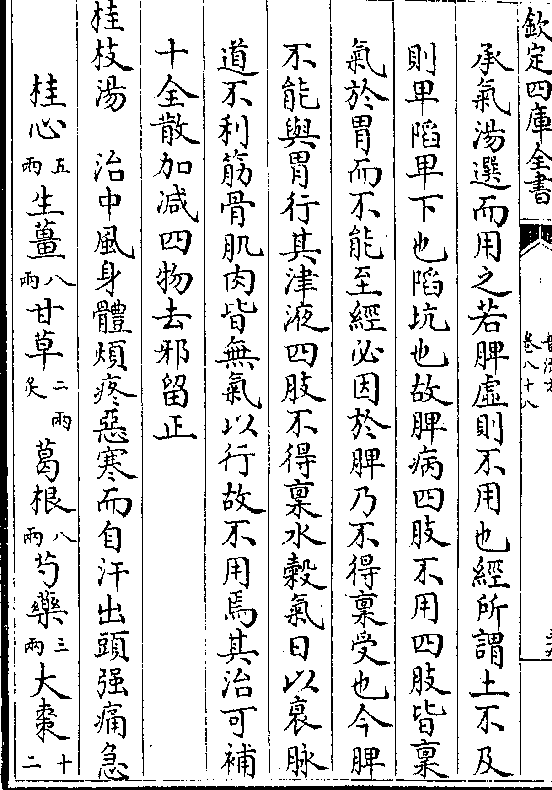 欽定四庫全書
卷八十八
承氣湯選而用之若脾虛則不用也經所謂土不及
則卑陷卑下也陷坑也故脾病四肢不用四肢皆稟
氣於胃而不能至經必因於脾乃不得稟受也今脾
不能與胃行其津液四肢不得稟水穀氣日以衰脉
道不利筋骨肌肉皆無氣以行故不用焉其治可補
十全散加減四物去邪留正
桂枝湯 治中風身體煩疼惡寒而自汗出頭强痛急
桂心五兩 生薑八兩 甘草二兩炙 葛根八兩 芍藥三兩 大棗十二